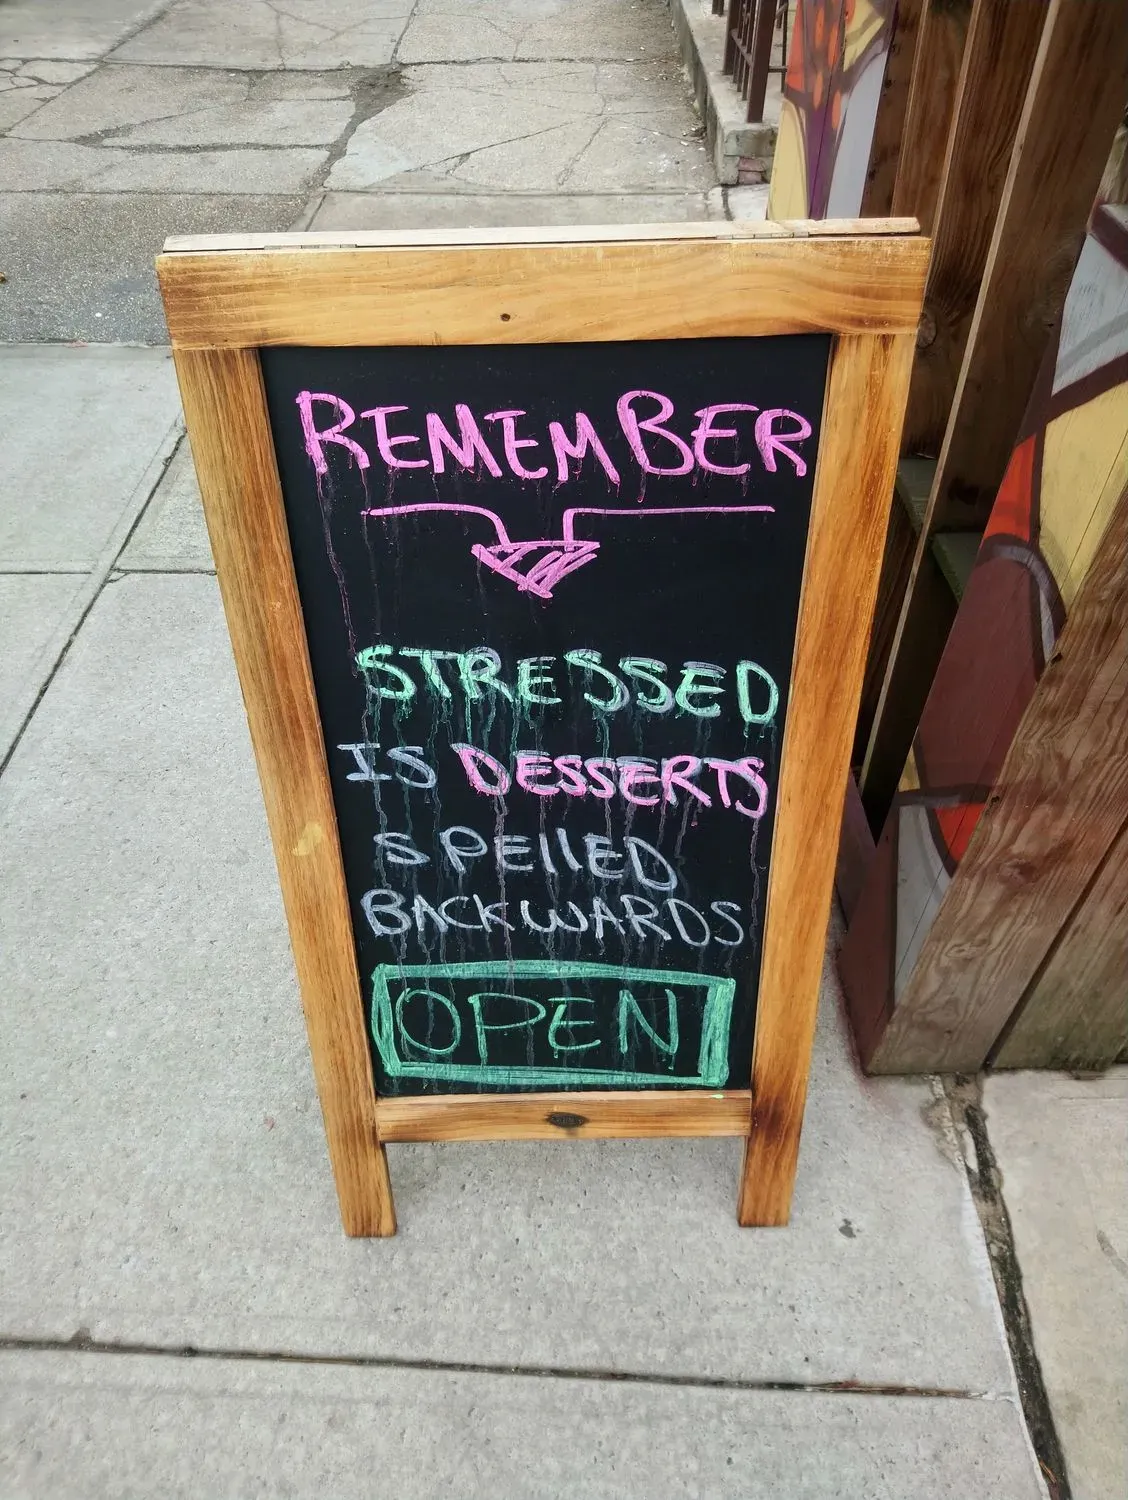 REMEMBER
STRESSED
IS DESSERTS
SPEllED
BACKWARDS
OPEN